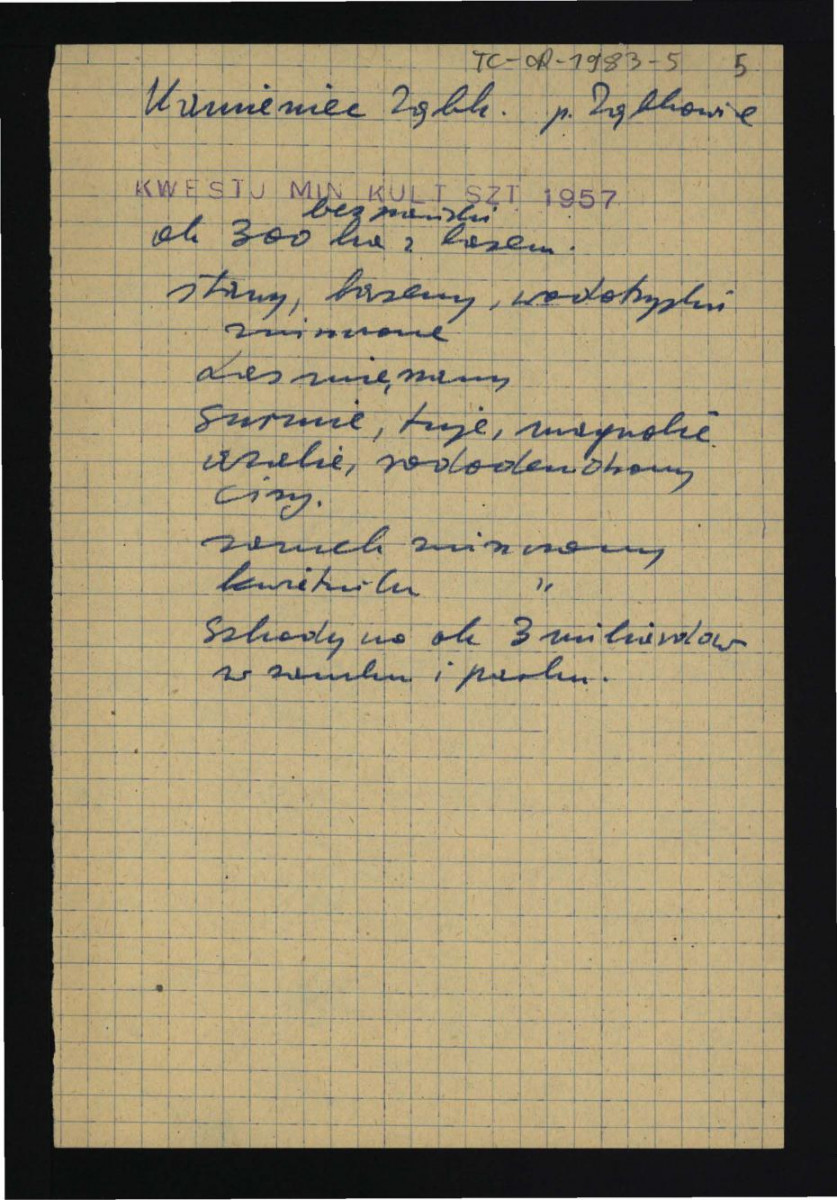 TC-OR-1983-5 5
Kamieniec Ząbk. p. Ząbkowice
KWESTJ MIN KULT SZT. 1957
ok 300 ha z lasem.
stawy, baseny, wodotryski
zniszczone
Las mieszany
Surmie, tuje, magnolie
azalie, rododendrony
Cisy.
zamek zniszczony
kwietniki "
Szkody na ok 3 miliardow
w zamku i parku.